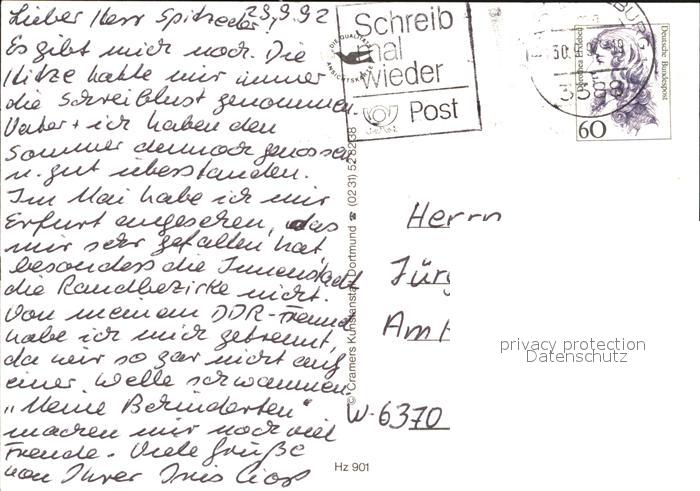 29.9.92
Lieber Herr Spitzeder,
Es gibt mich noch. Die
Hitze hatte mir immer
die Schreiblust genommen.
Vater + ich haben den
Sommer dennoch genossen
u. gut überstanden.
Im Mai habe ich mir
Erfurt angesehen, das
mir sehr gefallen hat,
besonders die Innenstadt,
die Randbezirke nicht.
Von meinem DDR-Freund
habe ich mich getrennt,
da wir so gar nicht auf
einer Welle schwammen.
"Meine Behinderten"
machen mir noch viel
Freude. Viele Grüße
von Ihrer Iris
Schreib
mal
wieder
Post
DIE QUALITÄTS
ANSICHTSKARTE
BURG
30.
3388
Deutsche Bundespost
60
© Cramers Kunstanstalt Dortmund ☎ (0231) 528238
Herrn
Jürg
Amt
W-6370
privacy protection
Datenschutz
Hz 901